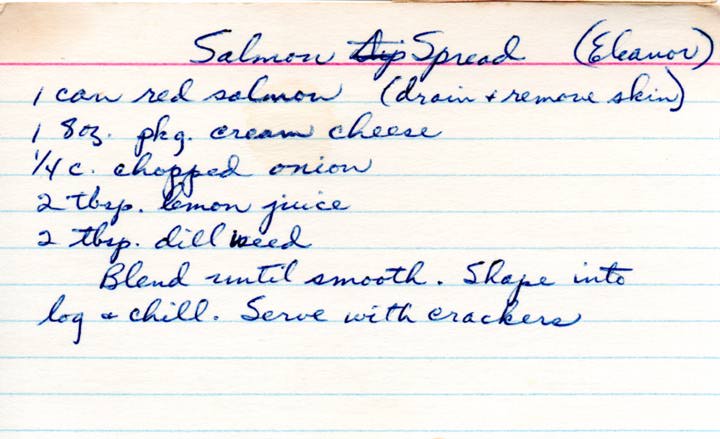 Salmon Dip Spread (Eleanor)
1 can red salmon (drain + remove skin)
1 8oz. pkg. cream cheese
1/4 c. chopped onion
2 tbsp. lemon juice
2 tbsp. dill weed
Blend until smooth. Shape into
log & chill. Serve with crackers